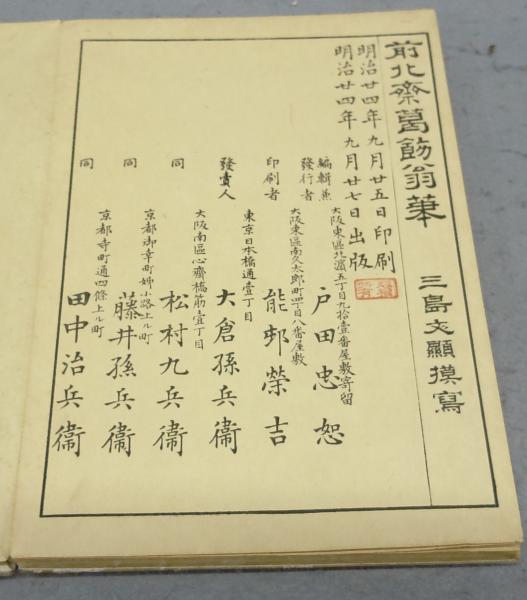 前北斎葛飾翁筆　三島文顯摸寫
明治廿四年九月廿五日印刷
明治廿四年九月廿七日出版
大阪東區北濱五丁目九拾壹番屋敷寄留
編輯兼發行者　戸田忠恕
大阪東區南久太郎町四丁目八番屋敷
印刷者　能邨榮吉
東京日本橋通壹丁目
發賣人　大倉孫兵衞
大阪南區心齋橋筋壹丁目
同　松村九兵衞
京都御幸町姉小路上ル町
同　藤井孫兵衞
京都寺町通四條上ル町
同　田中治兵衞